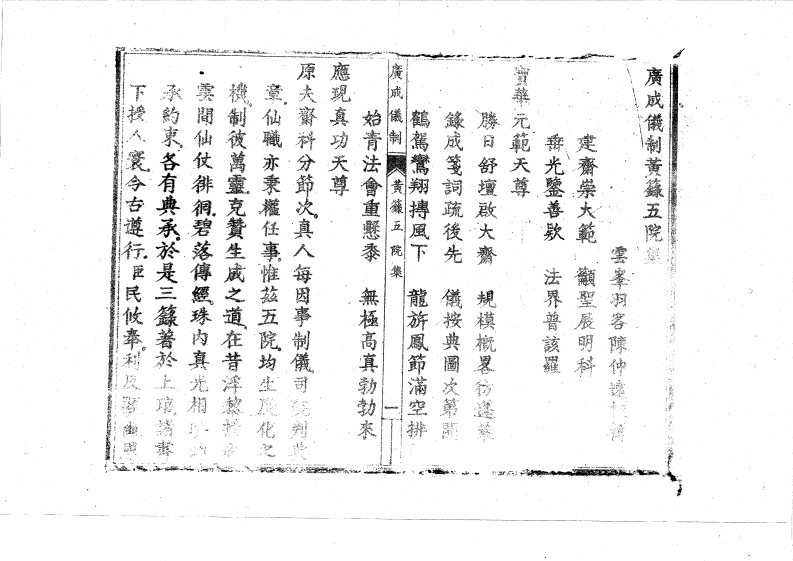 廣成儀制黃籙五院集
雲峯羽客陳仲遠
建齋崇大範　顯聖展明科
垂光鑒善欵　法界普該羅
寶華元範天尊
勝日舒壇啟大齋　規模概畧彷蓬萊
錄成箋詞疏後先　儀按典圖次第開
鶴駕鸞翔摶風下　龍旂鳳節滿空排
廣成儀制　黃籙五院集　一
始青法會重懸黍　無極高真勃勃來
應現真功天尊
原夫齋科分節次真人每因事制儀司院判
童仙職亦秉權任事惟茲五院均生度化之
機制彼萬靈克贊生成之道在昔浮黎
雲間仙仗徘徊碧落傳經珠內真光相
承約束各有典承於是三籙著於上
下授人寰今古遵行臣民攸奉利